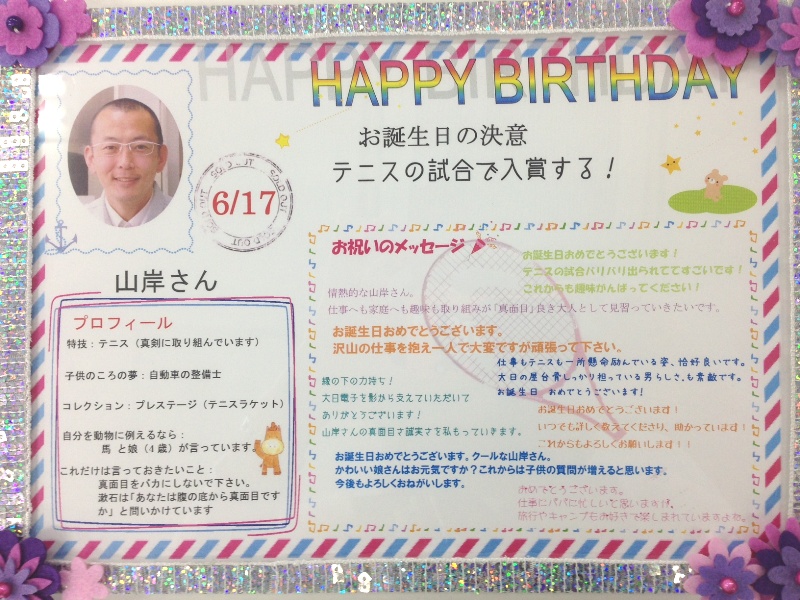 HAPPY BIRTHDAY
お誕生日の決意
テニスの試合で入賞する！
SOLD OUT
6/17
SOLD OUT
山岸さん
プロフィール
特技：テニス（真剣に取り組んでいます）
子供のころの夢：自動車の整備士
コレクション：プレステージ（テニスラケット）
自分を動物に例えるなら：
馬 と娘（4歳）が言っています
これだけは言っておきたいこと：
真面目をバカにしないで下さい。
漱石は「あなたは腹の底から真面目です
か」と問いかけています
お祝いのメッセージ
お誕生日おめでとうございます！
テニスの試合バリバリ出られててすごいです！
これからも趣味がんばってください！
情熱的な山岸さん。
仕事へも家庭へも趣味も取り組みが「真面目」良き大人として見習っていきたいです。
お誕生日おめでとうございます。
沢山の仕事を抱え一人で大変ですが頑張って下さい。
仕事もテニスも一所懸命励んでいる姿、恰好良いです。
大日の屋台骨しっかり担っている男らしさ、も素敵です。
お誕生日 おめでとうございます！
縁の下の力持ち！
大日電子を影から支えていただいて
ありがとうございます！
山岸さんの真面目さ誠実さを私もっていきます。
お誕生日おめでとうございます！
いつでも詳しく教えてくださり、助かっています！
これからもよろしくお願いします！！
お誕生日おめでとうございます。クールな山岸さん。
かわいい娘さんはお元気ですか？これからは子供の質問が増えると思います。
今後もよろしくおねがいします。
おめでとうございます。
仕事にパパに忙しいと思いますが、
旅行やキャンプもお好きで楽しまれていますよね。